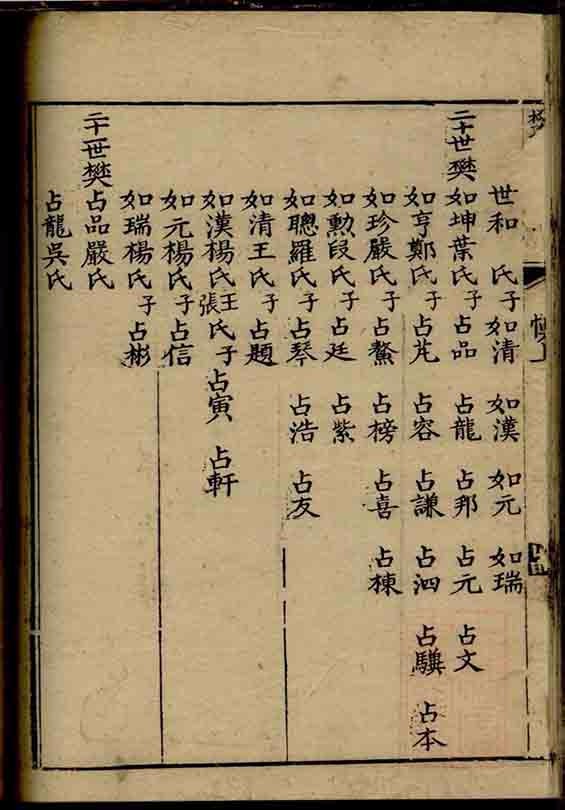 世和 氏子 如清 如漢 如元 如瑞
二十世樊 如坤葉氏子 占品 占龍 占邦 占元 占文
如亨鄭氏子 占芃 占容 占謙 占泗 占驥 占本
如珍嚴氏子 占鰲 占榜 占喜 占棟
如勳段氏子 占廷 占紫
如聰羅氏子 占琴 占浩 占友
如清王氏子 占題
如漢楊氏王張氏子 占寅 占軒
如元楊氏子 占信
如瑞楊氏子 占彬
二十一世樊 占品嚴氏
占龍吳氏